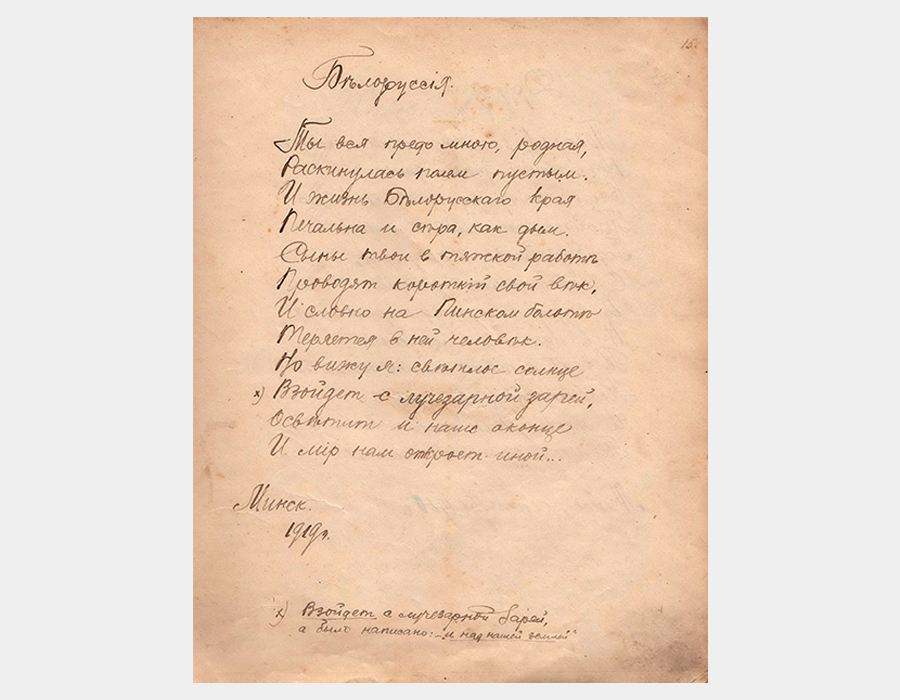 15.
Бѣлоруссія.
Ты вся предо мною, родная,
Раскинулась полем пустым.
И жизнь Бѣлорусскаго края
Печальна и сѣра, как дым.
Сыны твои в тяжкой работѣ
Проводят короткій свой вѣк,
И словно на Пинском болотѣ
Теряется в ней человѣк.
Но вижу я: свѣтлое солнце
х) Взойдет с лучезарной зарей,
Освѣтит и наше оконце
И мір нам откроет иной...
Минск.
1919г.
х) Взойдет с лучезарной зарей,
а было написано: „и над нашей землей"